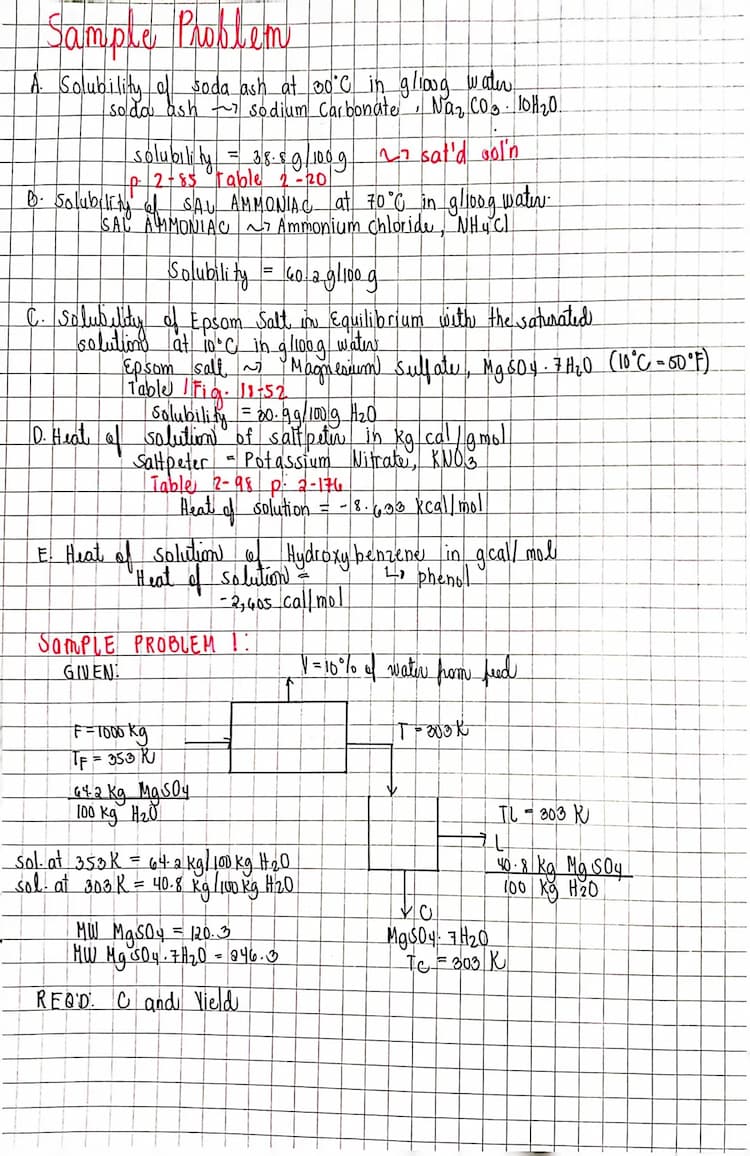 Sample Problem
A. Solubility of soda ash at 30°C in g/100g water
soda ash ~> sodium Carbonate, Na2CO3·10H2O
solubility = 38.8 g/100g ~> sat'd sol'n
p. 2-85 Table 2-20
B. Solubility of SAL AMMONIAC at 70°C in g/100g water.
SAL AMMONIAC ~> Ammonium Chloride, NH4Cl
Solubility = 60.2 g/100 g
C. Solubility of Epsom Salt in Equilibrium with the saturated
solution at 10°C in g/100g water
Epsom salt ~> Magnesium Sulfate, MgSO4·7H2O (10°C = 50°F)
Table / Fig. 18-52
Solubility = 30.9g/100g H2O
D. Heat of solution of saltpeter in kg cal/gmol
Saltpeter = Potassium Nitrate, KNO3
Table 2-98 p. 2-176
Heat of solution = -8.633 kcal/mol
E. Heat of solution of Hydroxybenzene in gcal/mol
Heat of solution = ↳ phenol
-2,605 cal/mol
SAMPLE PROBLEM 1:
GIVEN:
V = 10% of water from feed
F = 1000 kg
TF = 353 K
64.2 kg MgSO4
100 kg H2O
T = 303 K
TL = 303 K
L
40.8 kg MgSO4
100 kg H2O
sol. at 353 K = 64.2 kg/100 kg H2O
sol. at 303 K = 40.8 kg/100 kg H2O
C
MgSO4·7H2O
TC = 303 K
MW MgSO4 = 120.3
MW MgSO4·7H2O = 246.3
REQ'D: C and Yield